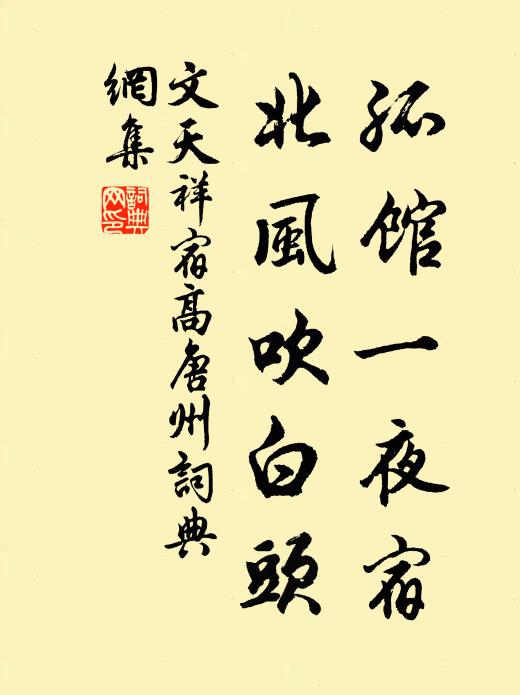 孤館一夜宿
北風吹白頭
文天祥宿高唐州詞典
網集
詞典
网印